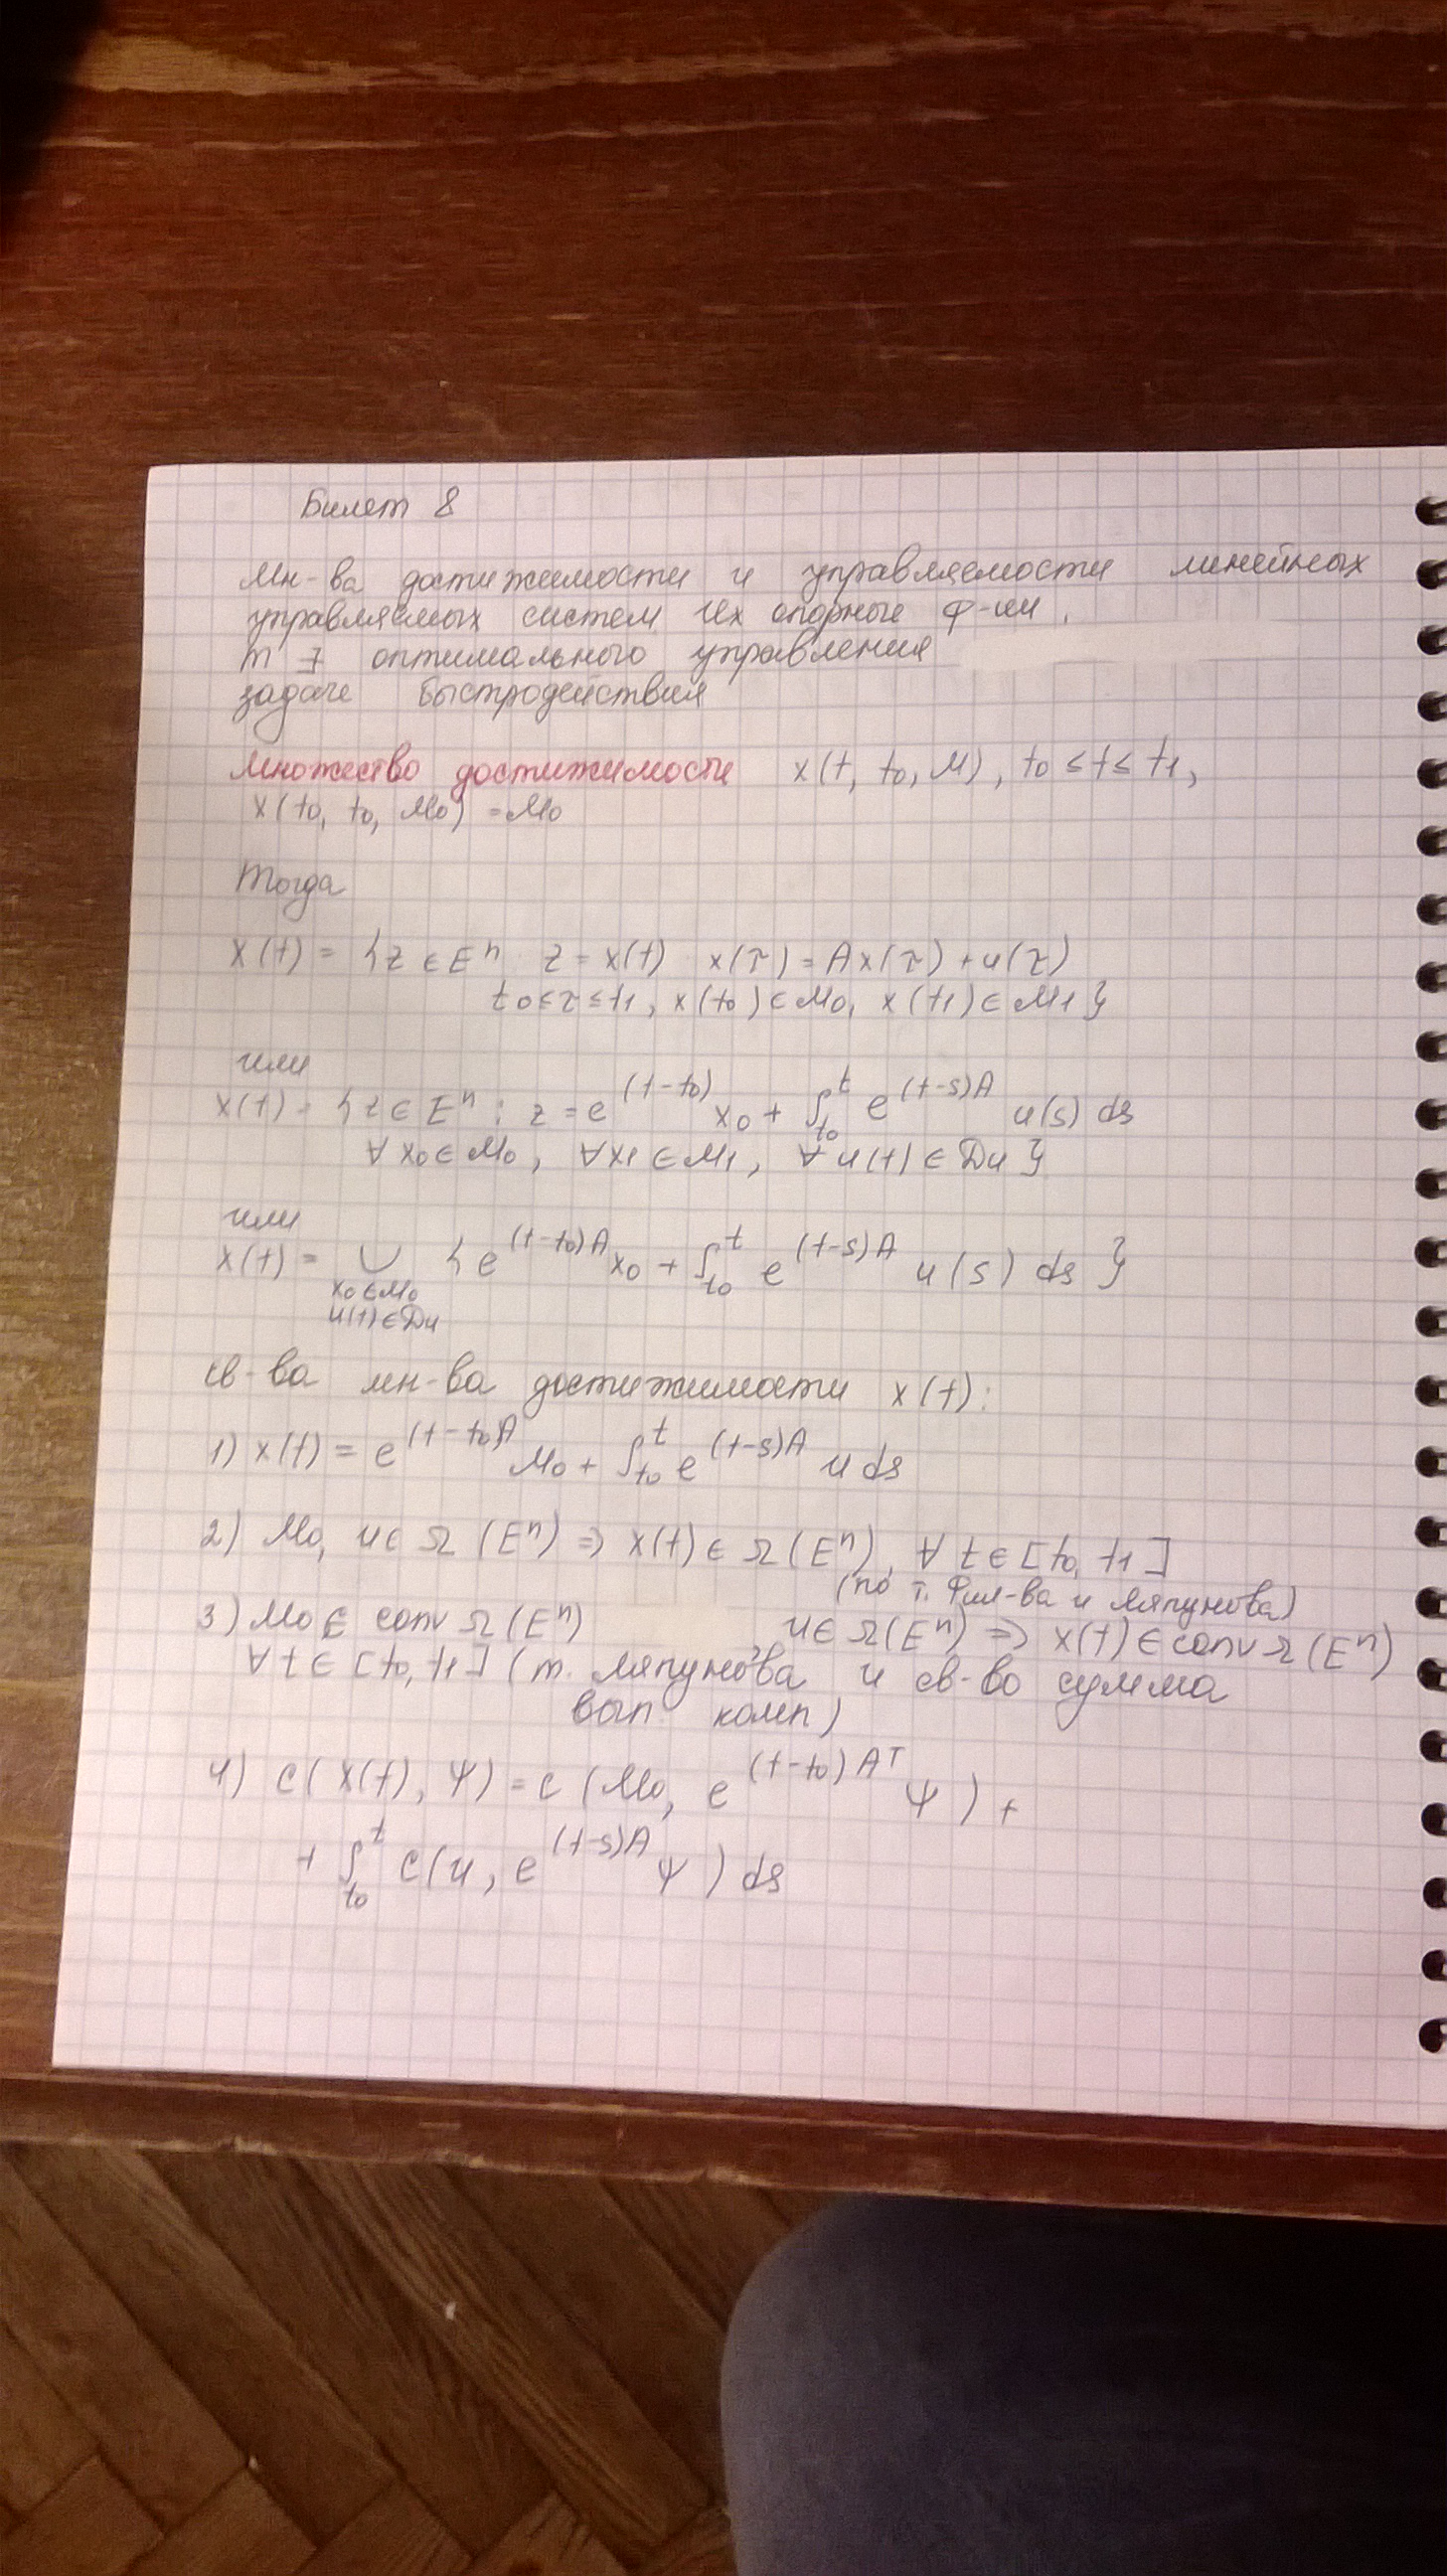 Билет 8
Мн-ва достижимости и управляемости линейных
управляемых систем их опорные ф-ии.
т ∃ оптимального управления
задаче быстродействия
Множество достижимости x(t, t₀, M), t₀ ≤ t ≤ t₁,
x(t₀, t₀, M₀) = M₀
Тогда
X(t) = {z ∈ Eⁿ z = x(t) x(τ) = Ax(τ) + u(τ)
t₀ ≤ τ ≤ t₁, x(t₀) ∈ M₀, x(t₁) ∈ M₁}
или
X(t) = {z ∈ Eⁿ : z = e^(t-t₀) x₀ + ∫_t₀^t e^(t-s)A u(s) ds
∀ x₀ ∈ M₀, ∀ x₁ ∈ M₁, ∀ u(t) ∈ Du}
или
X(t) = ∪ {e^(t-t₀)A x₀ + ∫_t₀^t e^(t-s)A u(s) ds}
x₀ ∈ M₀
u(t) ∈ Du
св-ва мн-ва достижимости x(t):
1) x(t) = e^(t-t₀)A M₀ + ∫_t₀^t e^(t-s)A U ds
2) M₀, U ∈ Ω(Eⁿ) ⇒ X(t) ∈ Ω(Eⁿ), ∀ t ∈ [t₀, t₁]
(по т. Фил-ва и Ляпунова)
3) M₀ ∈ conv Ω(Eⁿ) U ∈ Ω(Eⁿ) ⇒ X(t) ∈ conv Ω(Eⁿ)
∀ t ∈ [t₀, t₁] (т. Ляпунова и св-во сумма
вып комп)
4) C(X(t), ψ) = C(M₀, e^(t-t₀)Aᵀ ψ) +
+ ∫_t₀^t C(U, e^(t-s)A ψ) ds